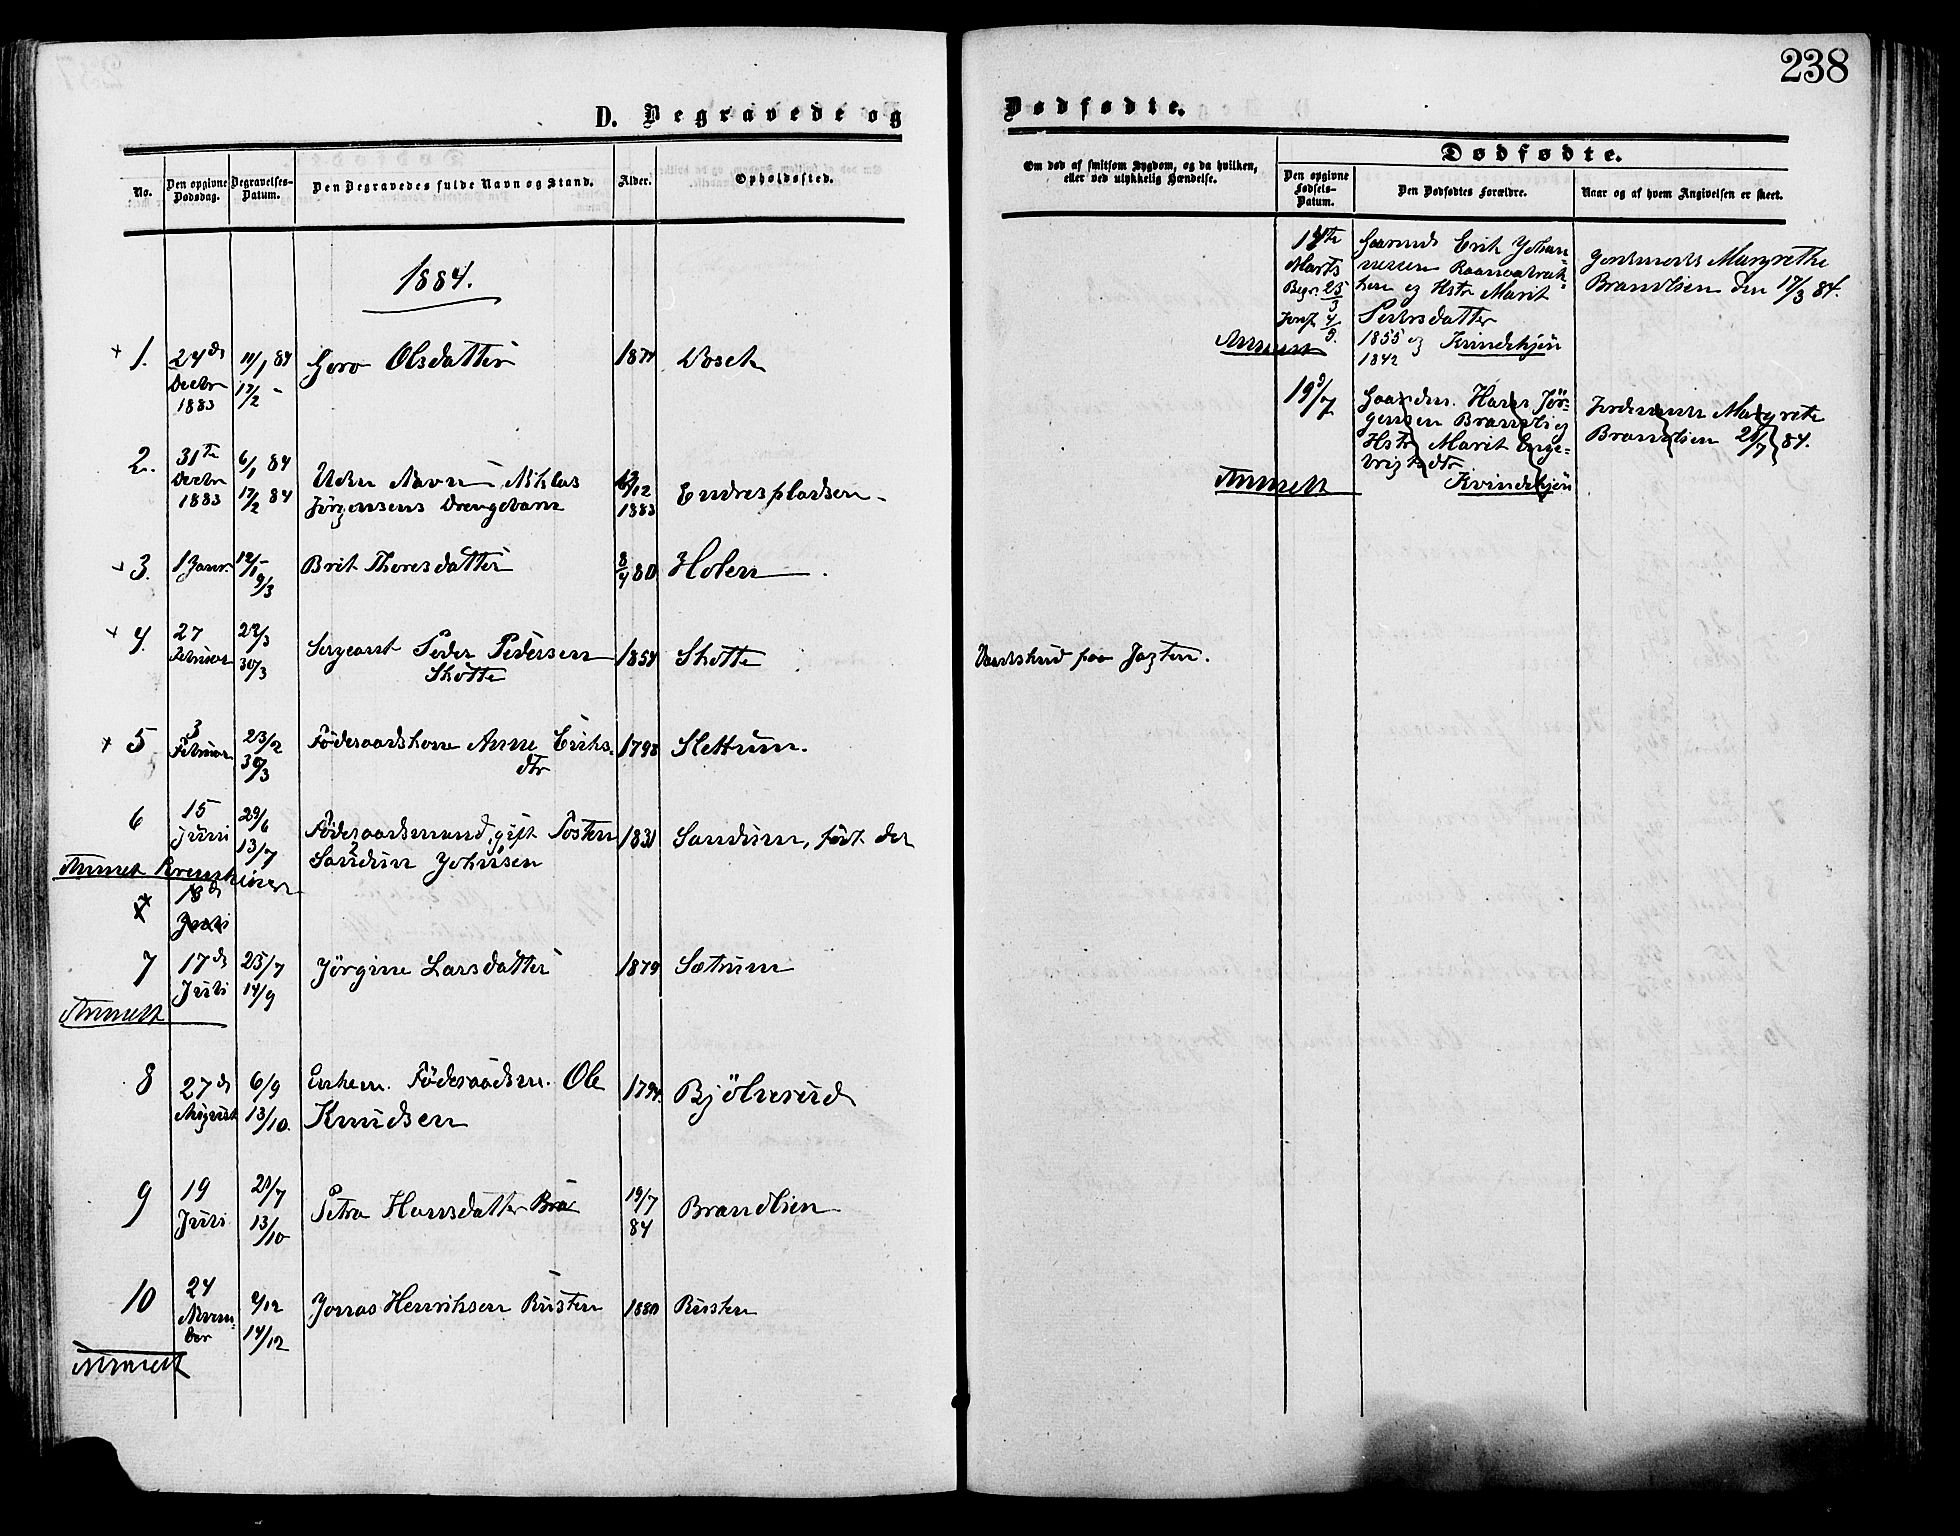 238
D. Begravede og Dødfødte.
No.
Den opgivne Dødsdag.
Begravelses-Datum.
Den Begravedes fulde Navn og Stand.
Alder.
Opholdssted.
Om død af smitsom Sygdom, og da hvilken, eller ved ulykkelig Hændelse.
Dødfødte.
Den opgivne Fødsels-Datum.
Den Dødfødtes Forældre.
Naar og af hvem Angivelsen er skeet.
1884.
1. 24de Decbr 1883 11/1 84 17/2 - Goro Olsdatter 1874
2. 31te Decbr 1883 6/1 84 17/2 84 Uden Navn, Niklas
Jørgensens Drengebarn 1883 Endrespladsen -
3. 1 Janr. 9/3 Brit Thoresdatter 80 Holen
4. 27 Februar 30/3 Sergeant Peder Pedersen
Skotte 1854 Skotte
Vaadeskud paa Jagten.
5 3 Februar 23/2 30/3 Føderaadskone Anne Eriks-
dtr 1798 Slettum.
6 15 Juni 29/6 13/7 Føderaadsmand, gift Tosten
Sandum Johnsen 1831 Sandum, født der
Anmeldt
18de
Juli
7 17de Juli 25/7 14/9 Jørgine Larsdatter 1879 Sætrum
Anmeldt
8 27de August 6/9 13/10. Enkem. Føderaadsm. Ole
Knudsen 1794 Bjölverud
9 19 Juli 21/7 13/10 Petra Hansdatter Bra 19/7 84 Brandlien
10 24 Novem-
ber 2/12 14/12 Jonas Henriksen Rusten 1880 Rusten
Anmeldt
Marts
Begr. 25/3
Gaarmd Erik Johan-
nesen
og Hstr Marit
Pedersdatter
1855 og Kvindekjön
1842
Jordemoder Margrethe
Brandlien den 17/3 84.
Anmeldt
19/7
Gaardm. Hans Jör-
gensen Brandlien
Hstr Marit Inge-
brigtsdtr
Kvindekjön
Jordemoder Margrethe
Brandlien 21/7 84.
Anmeldt